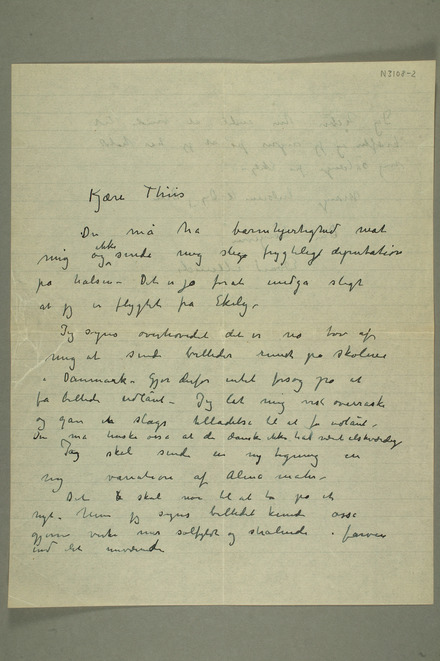 N3108-2
Kjære Thiis
Du må ha barmhjertighed mod
mig og ikke sende mig slige frygtelige deputation
på halsen – Det er jo for at undgå sligt
at jeg er flygtet fra Ekely –
Jeg synes overhovedet det er noe tøv af
mig at sende billeder rundt på skolerne
i Danmark – Gjør derfor intet forsøg på at
få billeder udlånt – Jeg lot mig vist overraske
og gav en slags tilladelse til at få udlånt –
Du må huske også at de danske ikke har vært elskværdig
Jeg skal sende en ny tegning en
ny variation af Alma mater –
Det skal noe til at ta på et
nyt – Men jeg synes billedet kunde også
gjerne virke mer solfyldt og strålende i farven
end det nuværende